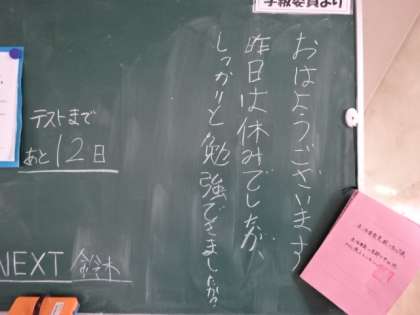 学級委員より
おはようございます
昨日は休みでしたが、
しっかりと勉強できましたか?
テストまで
あと12日
NEXT 鈴木